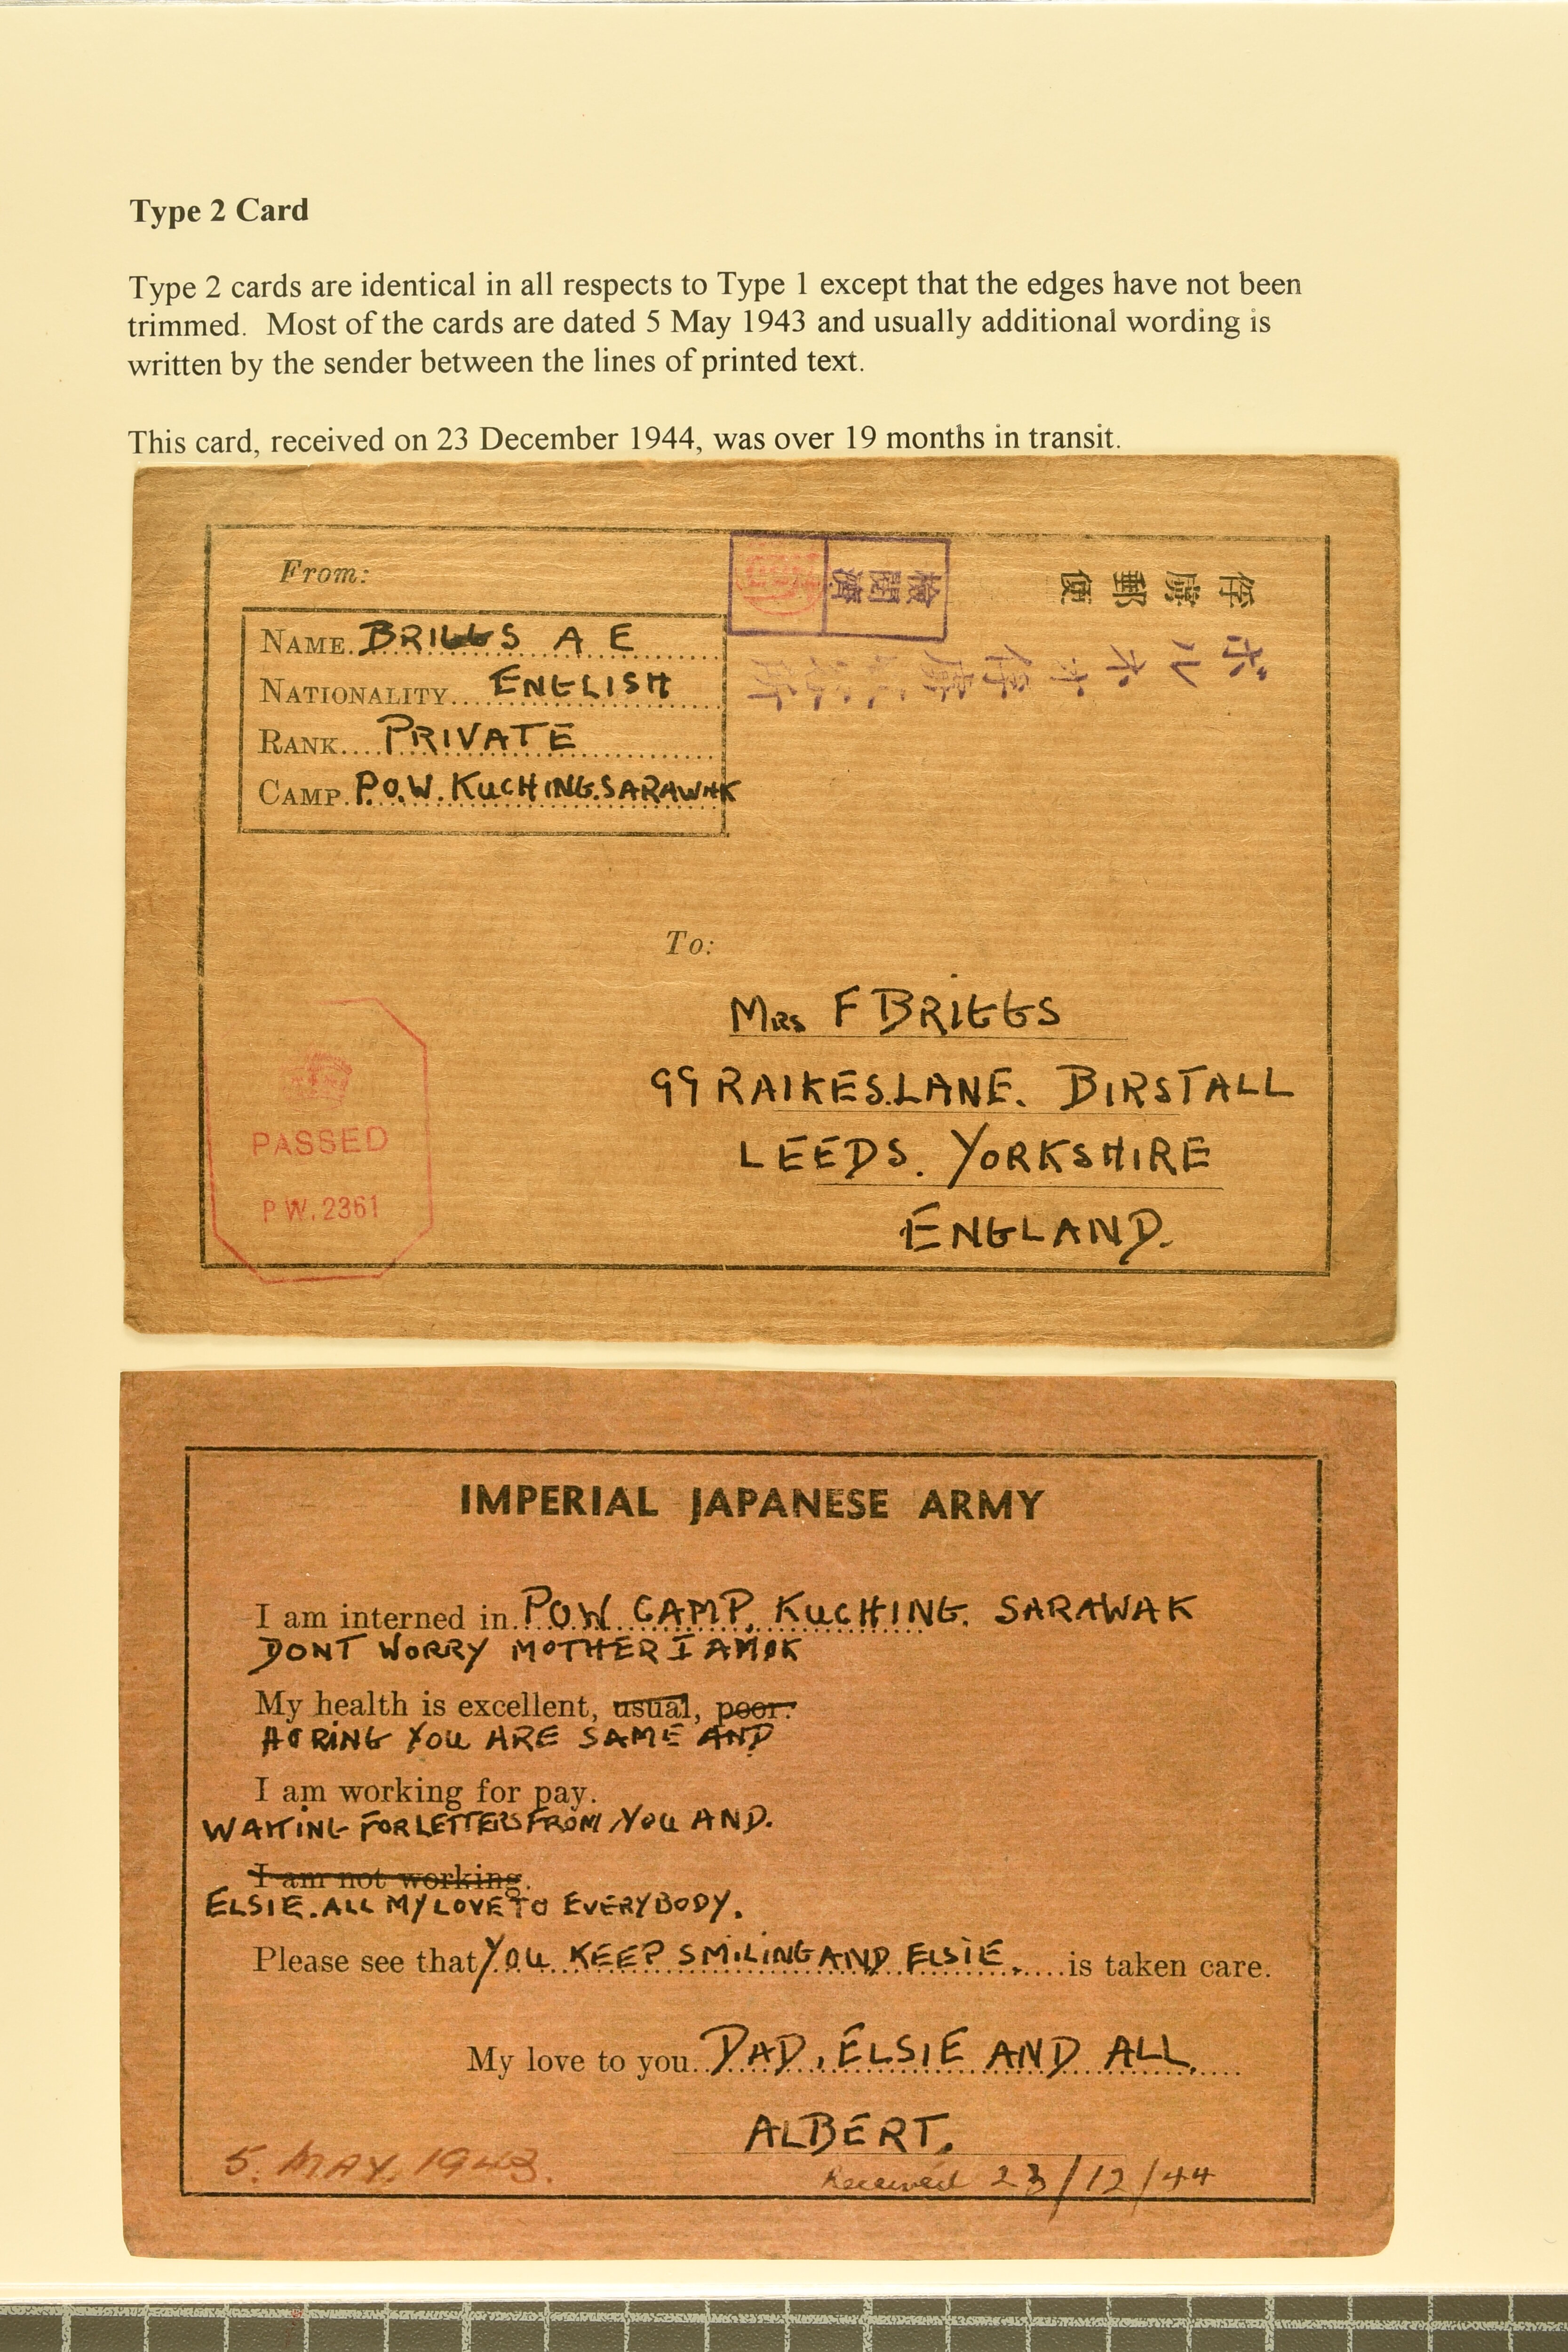 Type 2 Card
Type 2 cards are identical in all respects to Type 1 except that the edges have not been
trimmed. Most of the cards are dated 5 May 1943 and usually additional wording is
written by the sender between the lines of printed text.
This card, received on 23 December 1944, was over 19 months in transit.
From:
NAME. BRIGGS A E
NATIONALITY... ENGLISH
RANK.... PRIVATE
CAMP. P.O.W. KUCHING. SARAWAK
検閲濟
俘虜郵便
ボルネオ俘虜收容所
To:
MRS F BRIGGS
99 RAIKES.LANE. BIRSTALL
LEEDS. YORKSHIRE
ENGLAND.
PASSED
P.W. 2361
IMPERIAL JAPANESE ARMY
I am interned in POW CAMP, KUCHING. SARAWAK
DONT WORRY MOTHER I AM OK
My health is excellent, usual, poor.
HOPING YOU ARE SAME AND
I am working for pay.
WAITING FOR LETTERS FROM YOU AND.
I am not working.
ELSIE. ALL MY LOVE TO EVERYBODY.
Please see that YOU KEEP SMILING AND ELSIE. is taken care.
My love to you DAD, ELSIE AND ALL.
ALBERT.
5. MAY. 1943.
Received 23/12/44